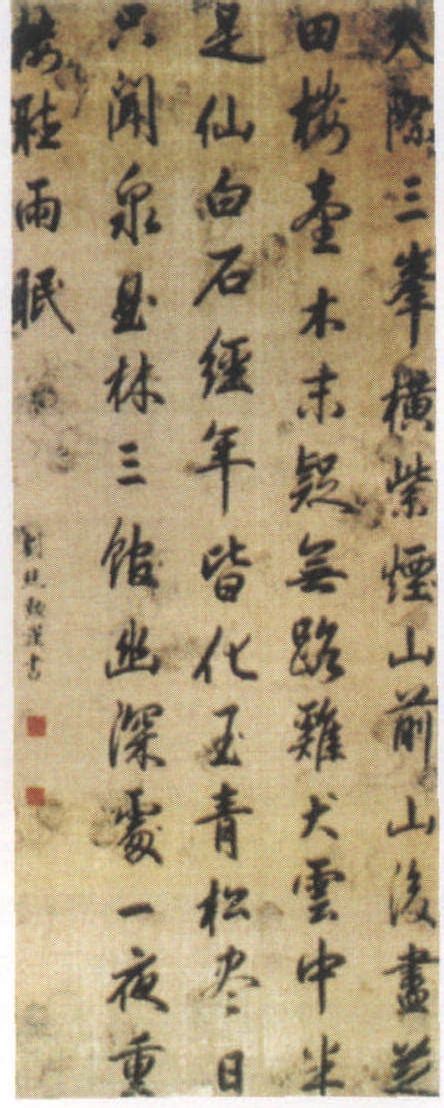 天際三峯橫紫煙山前山後盡芝
田樓臺木末疑無路雞犬雲中半
是仙白石經年皆化玉青松尽日
只聞泉林三館幽深處一夜重
樓聽雨眠
劉統勲書